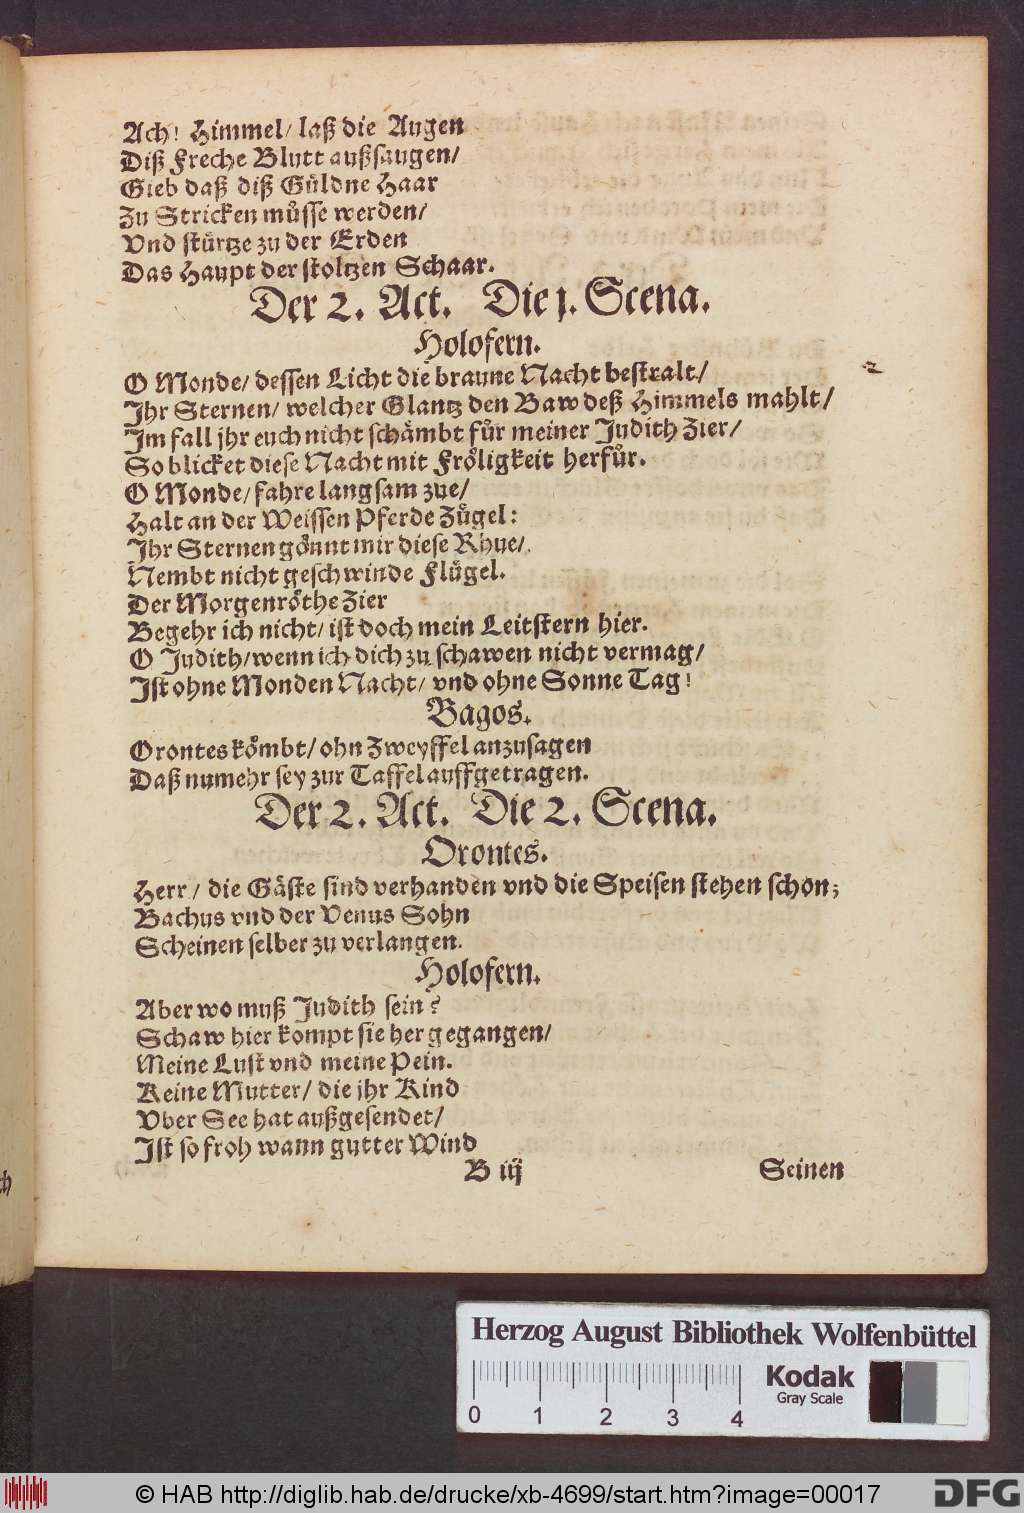 Ach! Himmel/ laß die Augen
Diß Freche Blutt außsaugen/
Gieb daß diß Güldne Haar
Zu Stricken müsse werden/
Vnd stürtze zu der Erden
Das Haupt der stoltzen Schaar.
Der 2. Act. Die j. Scena.
Holofern.
O Monde/ dessen Licht die braune Nacht bestralt/
Jhr Sternen/ welcher Glantz den Baw deß Himmels mahlt/
Jm fall jhr euch nicht schämbt für meiner Judith Zier/
So blicket diese Nacht mit Fröligkeit herfür.
O Monde/ fahre langsam zue/
Halt an der Weissen Pferde Zügel:
Jhr Sternen gönnt mir diese Rhue/
Nembt nicht geschwinde Flügel.
Der Morgenröthe Zier
Begehr ich nicht/ ist doch mein Leitstern hier.
O Judith/ wenn ich dich zu schawen nicht vermag/
Jst ohne Monden Nacht/ vnd ohne Sonne Tag!
Bagos.
Orontes kömbt/ ohn Zweyffel anzusagen
Daß numehr sey zur Taffel auffgetragen.
Der 2. Act. Die 2. Scena.
Orontes.
Herr/ die Gäste sind verhanden vnd die Speisen stehen schon;
Bachus vnd der Venus Sohn
Scheinen selber zu verlangen.
Holofern.
Aber wo muß Judith sein?
Schaw hier kompt sie her gegangen/
Meine Lust vnd meine Pein.
Keine Mutter/ die jhr Kind
Vber See hat außgesendet/
Jst so froh wann gutter Wind
B iij Seinen
Herzog August Bibliothek Wolfenbüttel
Kodak
Gray Scale
0 1 2 3 4
© HAB http://diglib.hab.de/drucke/xb-4699/start.htm?image=00017
DFG